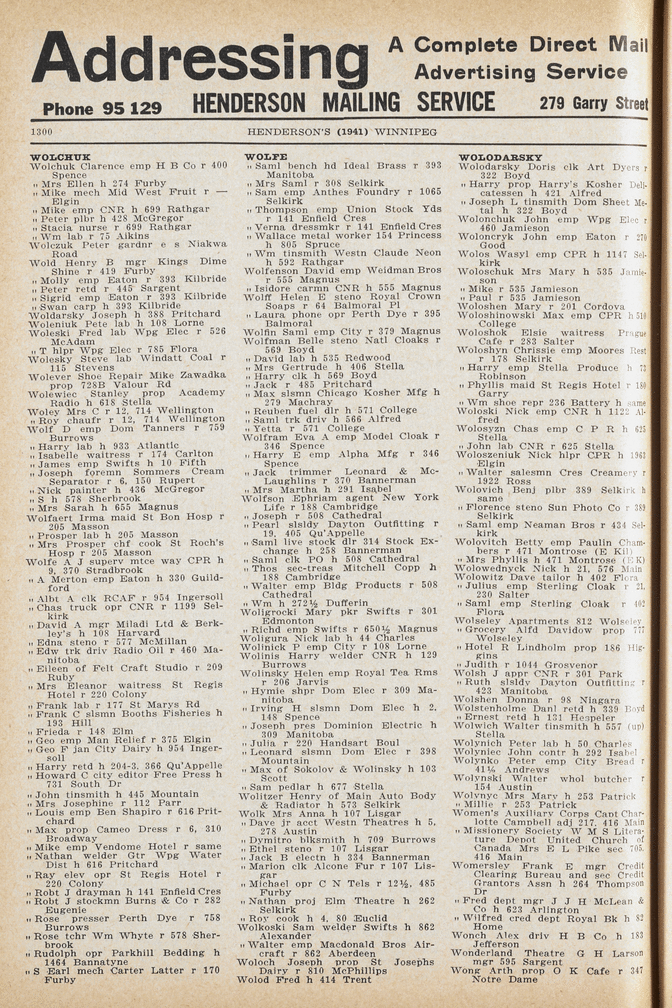 Addressing
A Complete Direct Mail
Advertising Service
Phone 95 129 HENDERSON MAILING SERVICE 279 Garry Street
1300 HENDERSON'S (1941) WINNIPEG
WOLCHUK
Wolchuk Clarence emp H B Co r 400
Spence
" Mrs Ellen h 274 Furby
" Mike mech Mid West Fruit r —
Elgin
" Mike emp CNR h 699 Rathgar
" Peter plbr h 428 McGregor
" Stacia nurse r 699 Rathgar
" Wm lab r 75 Aikins
Wolczuk Peter gardnr e s Niakwa
Road
Wold Henry B mgr Kings Dime
Shine r 419 Furby
" Molly emp Eaton r 393 Kilbride
" Peter retd r 445 Sargent
" Sigrid emp Eaton r 393 Kilbride
" Swan carp h 393 Kilbride
Woldarsky Joseph h 388 Pritchard
Woleniuk Pete lab h 108 Lorne
Woleski Fred lab Wpg Elec r 526
McAdam
" T hlpr Wpg Elec r 785 Flora
Wolesky Steve lab Windatt Coal r
115 Stevens
Wolever Shoe Repair Mike Zawadka
prop 728B Valour Rd
Wolewiec Stanley prop Academy
Radio h 618 Stella
Woley Mrs C r 12, 714 Wellington
" Roy chaufr r 12, 714 Wellington
Wolf D emp Dom Tanners r 759
Burrows
" Harry lab h 933 Atlantic
" Isabelle waitress r 174 Carlton
" James emp Swifts h 10 Fifth
" Joseph foremn Sommers Cream
Separator r 6, 150 Rupert
" Nick painter h 436 McGregor
" S h 578 Sherbrook
" Mrs Sarah h 655 Magnus
Wolfaert Irma maid St Bon Hosp r
205 Masson
" Prosper lab h 205 Masson
" Mrs Prosper chf cook St Roch's
Hosp r 205 Masson
Wolfe A J superv mtce way CPR h
9, 370 Stradbrook
" A Merton emp Eaton h 330 Guildford
" Albt A clk RCAF r 954 Ingersoll
" Chas truck opr CNR r 1199 Selkirk
" David A mgr Miladi Ltd & Berkley's h 108 Harvard
" Edna steno r 577 McMillan
" Edw trk driv Radio Oil r 460 Manitoba
" Eileen of Felt Craft Studio r 209
Ruby
" Mrs Eleanor waitress St Regis
Hotel r 220 Colony
" Frank lab r 177 St Marys Rd
" Frank C slsmn Booths Fisheries h
193 Hill
" Frieda r 148 Elm
" Geo emp Man Relief r 375 Elgin
" Geo F jan City Dairy h 954 Ingersoll
" Harry retd h 204-3, 366 Qu'Appelle
" Howard C city editor Free Press h
731 South Dr
" John tinsmith h 445 Mountain
" Mrs Josephine r 112 Parr
" Louis emp Ben Shapiro r 616 Pritchard
" Max prop Cameo Dress r 6, 310
Broadway
" Mike emp Vendome Hotel r same
" Nathan welder Gtr Wpg Water
Dist h 616 Pritchard
" Ray elev opr St Regis Hotel r
220 Colony
" Robt J drayman h 141 Enfield Cres
" Robt J stockmn Burns & Co r 282
Eugenie
" Rose presser Perth Dye r 758
Burrows
" Rose tchr Wm Whyte r 578 Sherbrook
" Rudolph opr Parkhill Bedding h
1464 Bannatyne
" S Earl mech Carter Latter r 170
Furby
WOLFE
" Saml bench hd Ideal Brass r 393
Manitoba
" Mrs Saml r 308 Selkirk
" Sam emp Anthes Foundry r 1065
Selkirk
" Thompson emp Union Stock Yds
r 141 Enfield Cres
" Verna dressmkr r 141 Enfield Cres
" Wallace metal worker 154 Princess
h 805 Spruce
" Wm tinsmith Westn Claude Neon
h 592 Rathgar
Wolfenson David emp Weidman Bros
r 555 Magnus
" Isidore carmn CNR h 555 Magnus
Wolff Helen E steno Royal Crown
Soaps r 64 Balmoral Pl
" Laura phone opr Perth Dye r 395
Balmoral
Wolfin Saml emp City r 379 Magnus
Wolfman Belle steno Natl Cloaks r
569 Boyd
" David lab h 535 Redwood
" Mrs Gertrude h 406 Stella
" Harry clk h 569 Boyd
" Jack r 485 Pritchard
" Max slsmn Chicago Kosher Mfg h
279 Machray
" Reuben fuel dlr h 571 College
" Saml trk driv h 566 Alfred
" Yetta r 571 College
Wolfram Eva A emp Model Cloak r
346 Spence
" Harry E emp Alpha Mfg r 346
Spence
" Jack trimmer Leonard & McLaughlins r 370 Bannerman
" Mrs Martha h 291 Isabel
Wolfson Ephriam agent New York
Life r 188 Cambridge
" Joseph r 508 Cathedral
" Pearl slsldy Dayton Outfitting r
19, 405 Qu'Appelle
" Saml live stock dlr 314 Stock Exchange h 258 Bannerman
" Saml clk PO h 508 Cathedral
" Thos sec-treas Mitchell Copp h
188 Cambridge
" Walter emp Bldg Products r 508
Cathedral
" Wm h 272½ Dufferin
Woligrocki Mary pkr Swifts r 301
Edmonton
" Richd emp Swifts r 650½ Magnus
Woligura Nick lab h 44 Charles
Wolinick P emp City r 108 Lorne
Wolinis Harry welder CNR h 129
Burrows
Wolinsky Helen emp Royal Tea Rms
r 206 Jarvis
" Hymie shpr Dom Elec r 309 Manitoba
" Irving H slsmn Dom Elec h 2,
148 Spence
" Joseph pres Dominion Electric h
309 Manitoba
" Julia r 220 Handsart Boul
" Leonard slsmn Dom Elec r 398
Mountain
" Max of Sokolov & Wolinsky h 103
Scott
" Sam pedlar h 677 Stella
Wolitzer Henry of Main Auto Body
& Radiator h 573 Selkirk
Wolk Mrs Anna h 107 Lisgar
" Dave jr acct Westn Theatres h 5,
278 Austin
" Dymitro blksmith h 709 Burrows
" Ethel steno r 107 Lisgar
" Jack B electn h 334 Bannerman
" Marion clk Alcone Fur r 107 Lisgar
" Michael opr C N Tels r 12½, 485
Furby
" Nathan proj Elm Theatre h 262
Selkirk
" Roy cook h 4, 80 Euclid
Wolkoski Sam welder Swifts h 862
Alexander
" Walter emp Macdonald Bros Aircraft r 862 Aberdeen
Woloch Joseph prop St Josephs
Dairy r 810 McPhillips
Wolod Fred h 414 Trent
WOLODARSKY
Wolodarsky Doris clk Art Dyers r
322 Boyd
" Harry prop Harry's Kosher Delicatessen h 421 Alfred
" Joseph L tinsmith Dom Sheet Metal h 322 Boyd
Wolonchuk John emp Wpg Elec r
460 Jamieson
Woloncryk John emp Eaton r 270
Good
Wolos Wasyl emp CPR h 1147 Selkirk
Woloschuk Mrs Mary h 535 Jamieson
" Mike r 535 Jamieson
" Paul r 535 Jamieson
Woloshen Mary r 201 Cordova
Woloshinowski Max emp CPR h 510
College
Woloshok Elsie waitress Prague
Cafe r 283 Salter
Woloshyn Chrissie emp Moores Rest
r 178 Selkirk
" Harry emp Stella Produce h 72
Robinson
" Phyllis maid St Regis Hotel r 180
Garry
" Wm shoe repr 236 Battery h same
Woloski Nick emp CNR h 1122 Alfred
Wolosyzn Chas emp C P R h 625
Stella
" John lab CNR r 625 Stella
Woloszeniuk Nick hlpr CPR h 1961
Elgin
" Walter salesmn Cres Creamery r
1922 Ross
Wolovich Benj plbr 389 Selkirk h
same
" Florence steno Sun Photo Co r 389
Selkirk
" Saml emp Neaman Bros r 434 Selkirk
Wolovitch Betty emp Paulin Chambers r 471 Montrose (E Kil)
" Mrs Phyllis h 471 Montrose (E K)
Wolowednyck Nick h 21, 576 Main
Wolowitz Dave tailor h 402 Flora
" Julius emp Sterling Cloak r 21,
230 Salter
" Saml emp Sterling Cloak r 402
Flora
Wolseley Apartments 812 Wolseley
" Grocery Alfd Davidow prop 777
Wolseley
" Hotel R Lindholm prop 186 Higgins
" Judith r 1044 Grosvenor
Wolsh J appr CNR r 301 Park
" Ruth slsldy Dayton Outfitting r
423 Manitoba
Wolshen Donna r 98 Niagara
Wolstenholme Danl retd h 339 Boyd
" Ernest retd h 131 Hespeler
Wolwich Walter tinsmith h 557 (up)
Stella
Wolynich Pete lab h 50 Charles
Wolyniec John contr h 292 Isabel
Wolynko Peter emp City Bread r
41½ Andrews
Wolynski Walter whol butcher r
154 Austin
Wolynyc Mrs Mary h 253 Patrick
" Millie r 253 Patrick
Women's Auxiliary Corps Capt Charlotte Campbell adj 217, 416 Main
" Missionery Society W M S Literature Depot United Church of
Canada Mrs E L Pike sec 705,
416 Main
Womersley Frank E mgr Credit
Clearing Bureau and sec Credit
Grantors Assn h 264 Thompson
Dr
" Fred dept mgr J J H McLean &
Co h 623 Arlington
" Wilfred cred dept Royal Bk h 82
Home
Wonch Alex driv H B Co h 183
Jefferson
Wonderland Theatre G H Larson
mgr 595 Sargent
Wong Arth prop O K Cafe r 347
Notre Dame